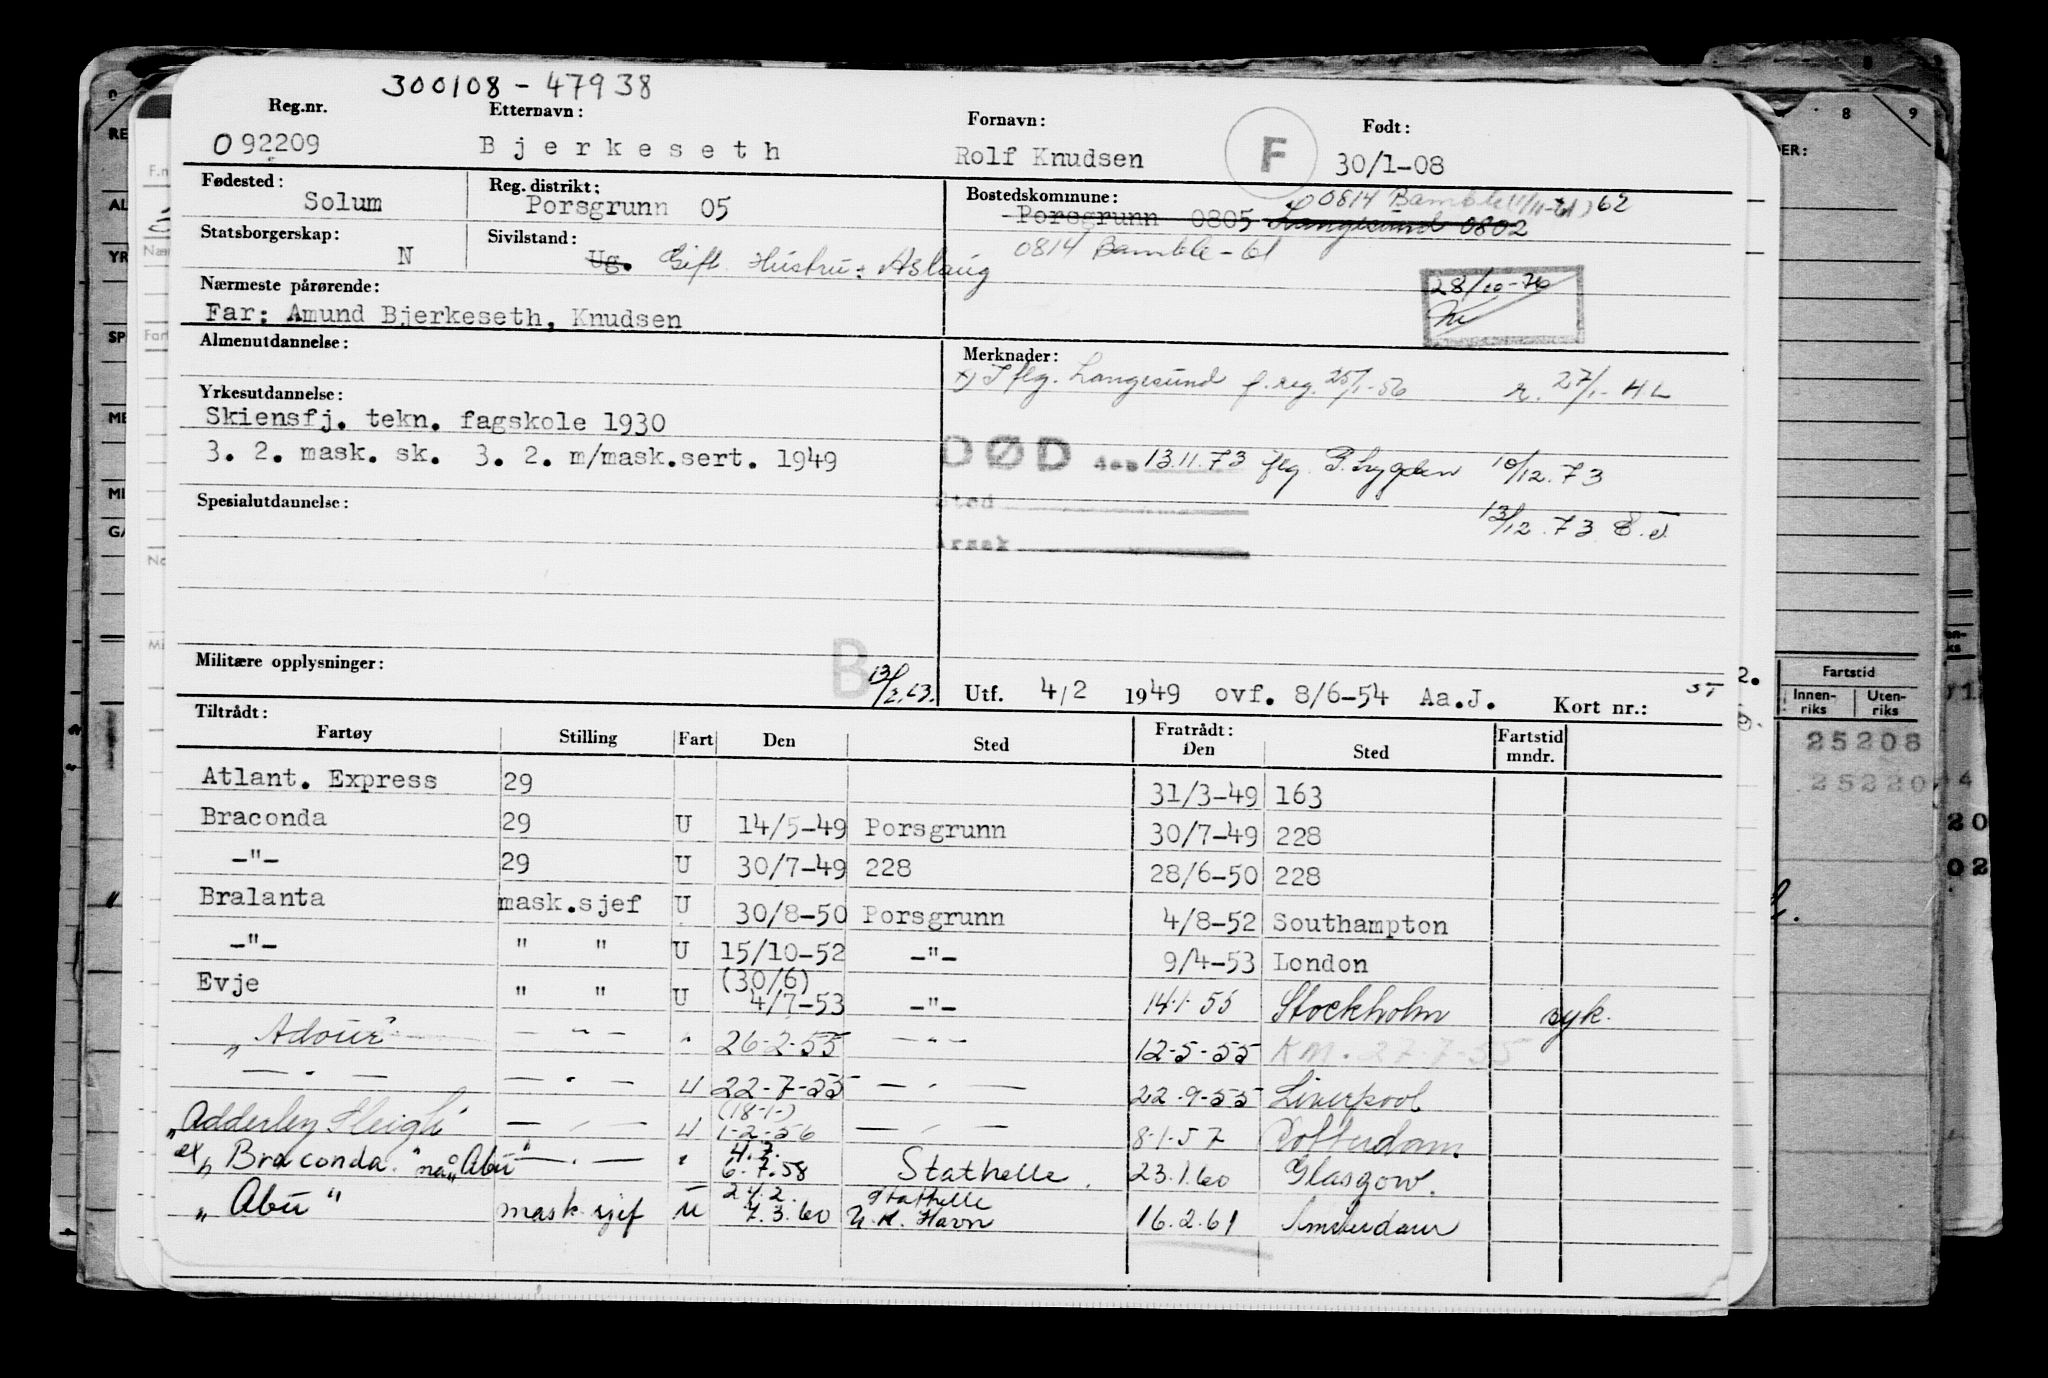 300108 - 47938
Reg.nr. Etternavn: Fornavn: Født:
092209 Bjerkeseth Rolf Knudsen F 30/1-08
Fødested: Reg. distrikt: Bostedskommune:
Solum Porsgrunn 05 Porsgrunn 0805 Langesund 0802 0814 Bamble (1/11-61) 62
Statsborgerskap: Sivilstand: 0814 Bamble - 61
N Ug. Gift Hustru: Aslaug
Nærmeste pårørende: 28/10-76
Far: Amund Bjerkeseth, Knudsen
Almenutdannelse: Merknader:
x) I flg. Langesund f.reg. 25/1-56 27/1- H.L
Yrkesutdannelse:
Skiensfj. tekn. fagskole 1930
3. 2. mask. sk. 3. 2. m/mask.sert. 1949 DØD den 13.11.73 flg. 10/12.73
Spesialutdannelse: Sted 13/12.73
Årsak
Militære opplysninger: B 13/2.63.
Utf. 4/2 1949 ovf. 8/6-54 Aa.J. Kort nr.:
Tiltrådt: Fratrådt:
Fartøy Stilling Fart Den Sted Den Sted Fartstid mndr.
Atlant. Express 29 31/3-49 163
Braconda 29 U 14/5-49 Porsgrunn 30/7-49 228
-"- 29 U 30/7-49 228 28/6-50 228
Bralanta mask.sjef U 30/8-50 Porsgrunn 4/8-52 Southampton
-"- " " U 15/10-52 -"- 9/4-53 London
Evje " " U (30/6) 4/7-53 -"- 14.1.55 Stockholm syk.
"Adour" — " — " 26-2-55 — " — 12-5-55 KM. 27-7-55
— " — — " — U 22-7-55 — " — 22-9-55 Liverpool
"Adderley Sleigh — " — U (18-1-) 1-2-56 — " — 8.1.57 Rotterdam.
ex "Braconda" nå "Abu" — " — " 4.7. 6.7.58 Stathelle. 23.1.60 Glasgow.
"Abu" mask.sjef U 24.2. 7.3.60 Stathelle U.K. Havn 16.2.61 Amsterdam
8 9
Fartstid
Innen-riks Uten-riks
25208
25220